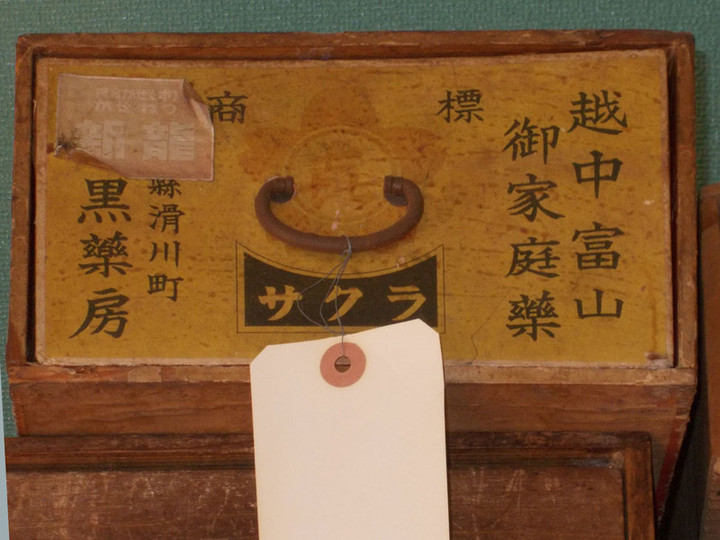 越中富山
御家庭藥
標商
サクラ
縣滑川町
黒藥房